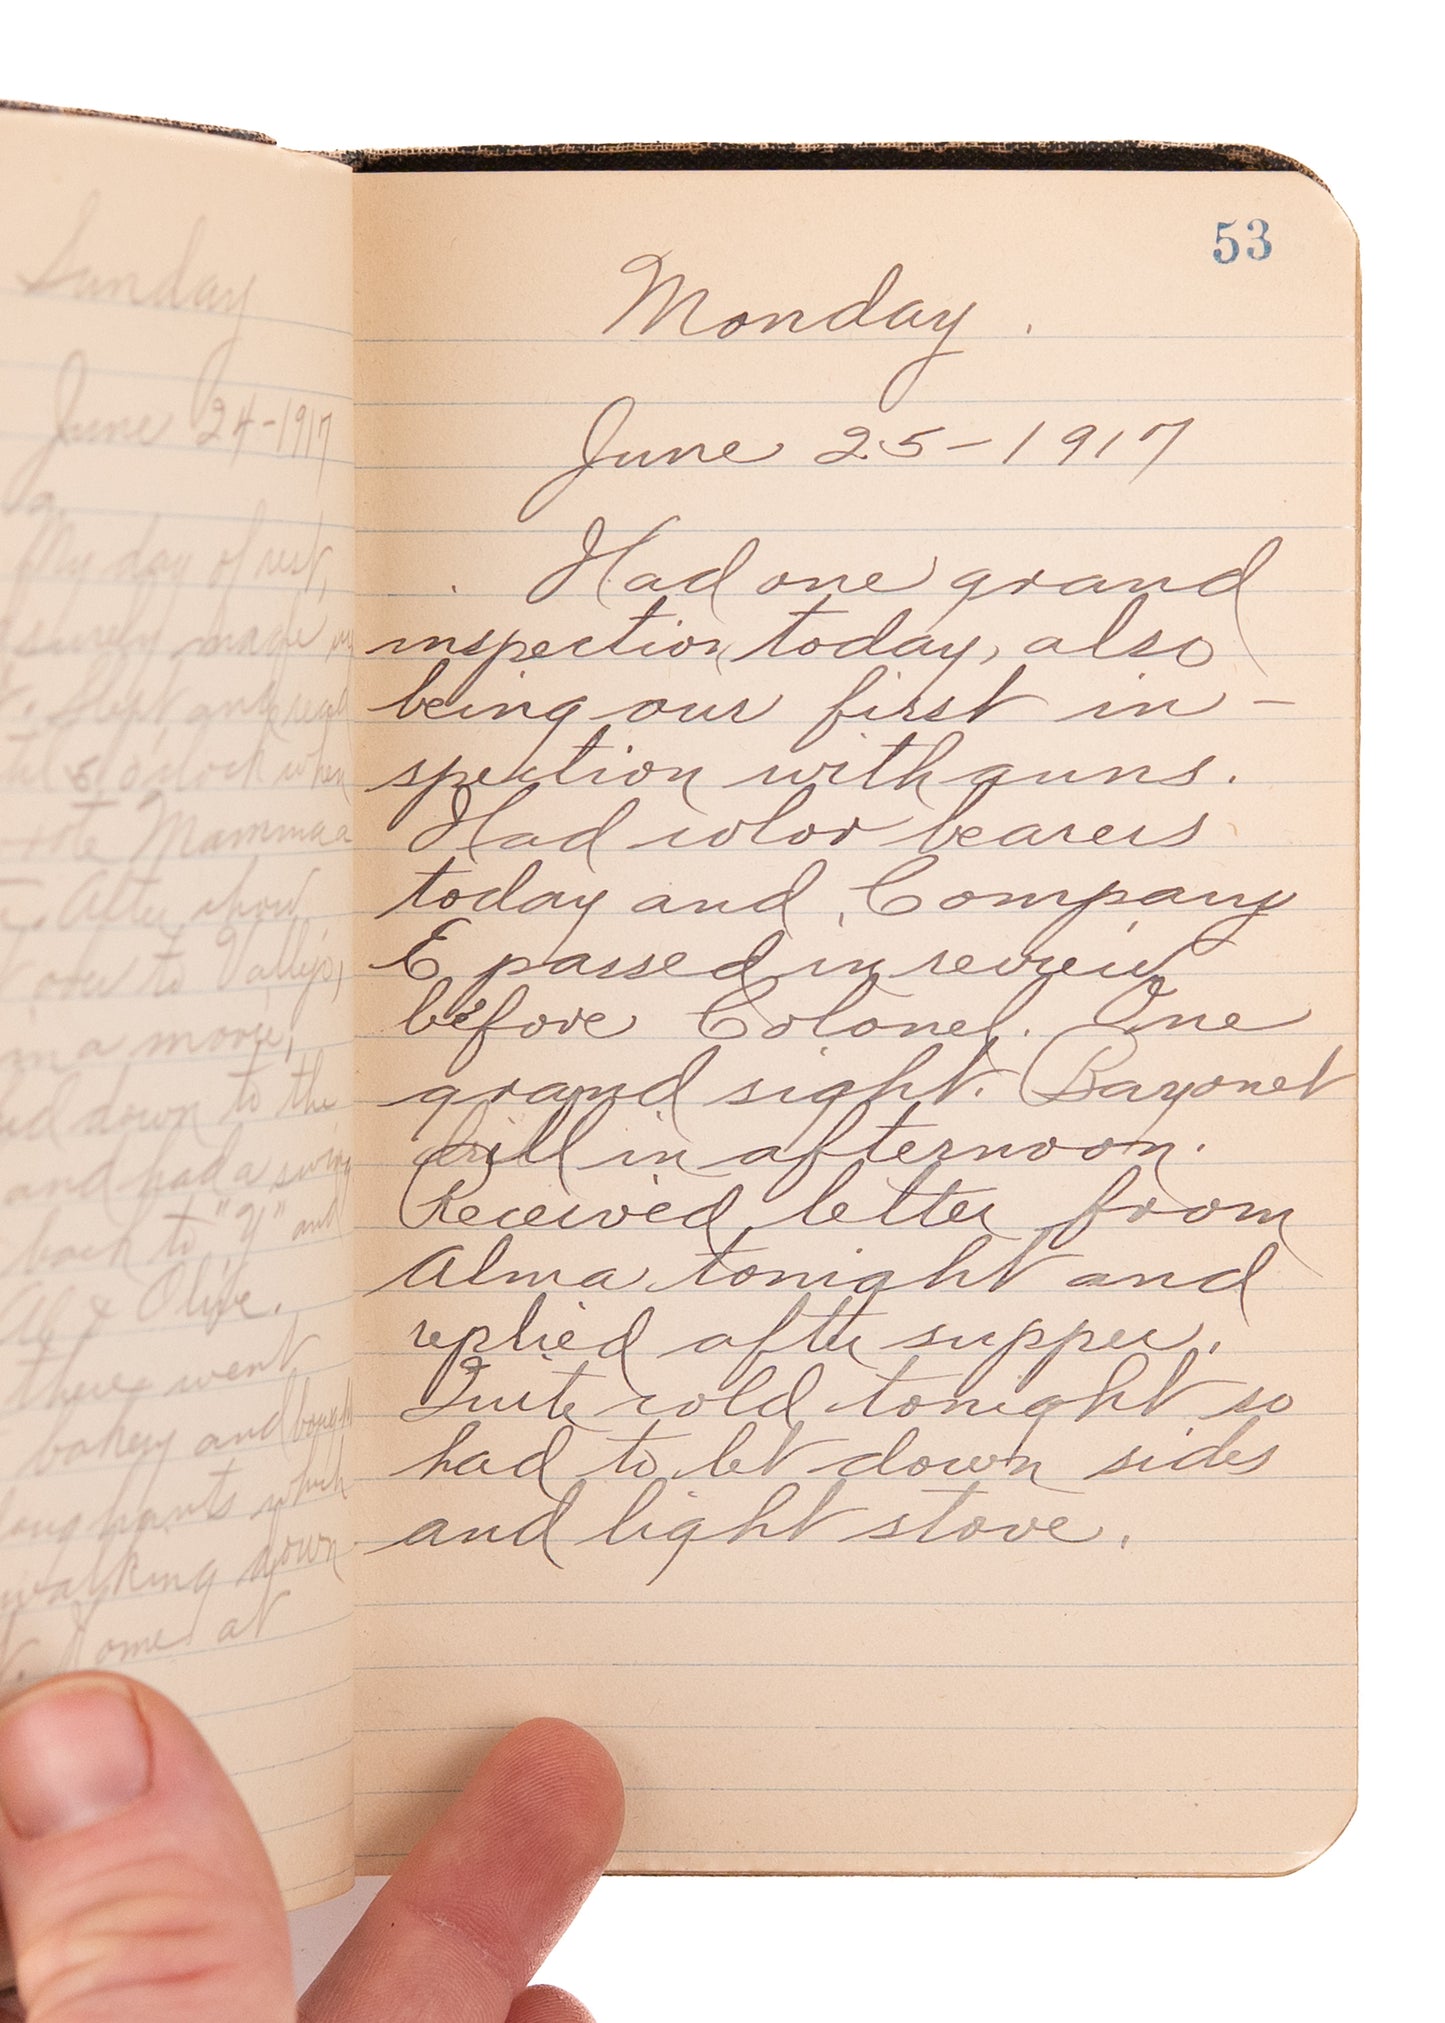 Sunday
June 24-1917
My day of rest,
surely made
Slept and read
5 o'clock when
Mamma a
After chow
over to Vallejo,
in a movie,
down to the
and had a swim
back to "Y" and
Al & Olive.
there went
bakery and bought
long pants which
walking down
Home at
53
Monday.
June 25-1917
Had one grand
inspection today, also
being our first in-
spection with guns.
Had color bearers
today and Company
E passed in review
before Colonel. One
grand sight. Bayonet
drill in afternoon.
Received letter from
Alma tonight and
replied after supper.
Quite cold tonight so
had to let down sides
and light stove.